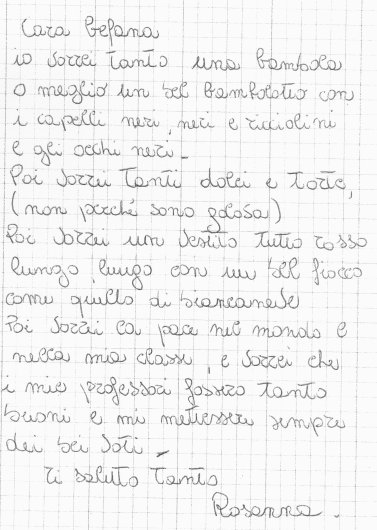 Cara Befana
io vorrei tanto una bambola
o meglio un bel bambolotto con
i capelli neri, neri e ricciolini
e gli occhi neri.
Poi vorrei tanti dolci e torte,
(non perché sono golosa)
Poi vorrei un vestito tutto rosso
lungo, lungo con un bel fiocco
come quello di biancaneve
Poi vorrei la pace nel mondo e
nella mia classe, e vorrei che
i miei professori fossero tanto
buoni e mi mettessero sempre
dei bei voti.
Ti saluto tanto
Rosanna.